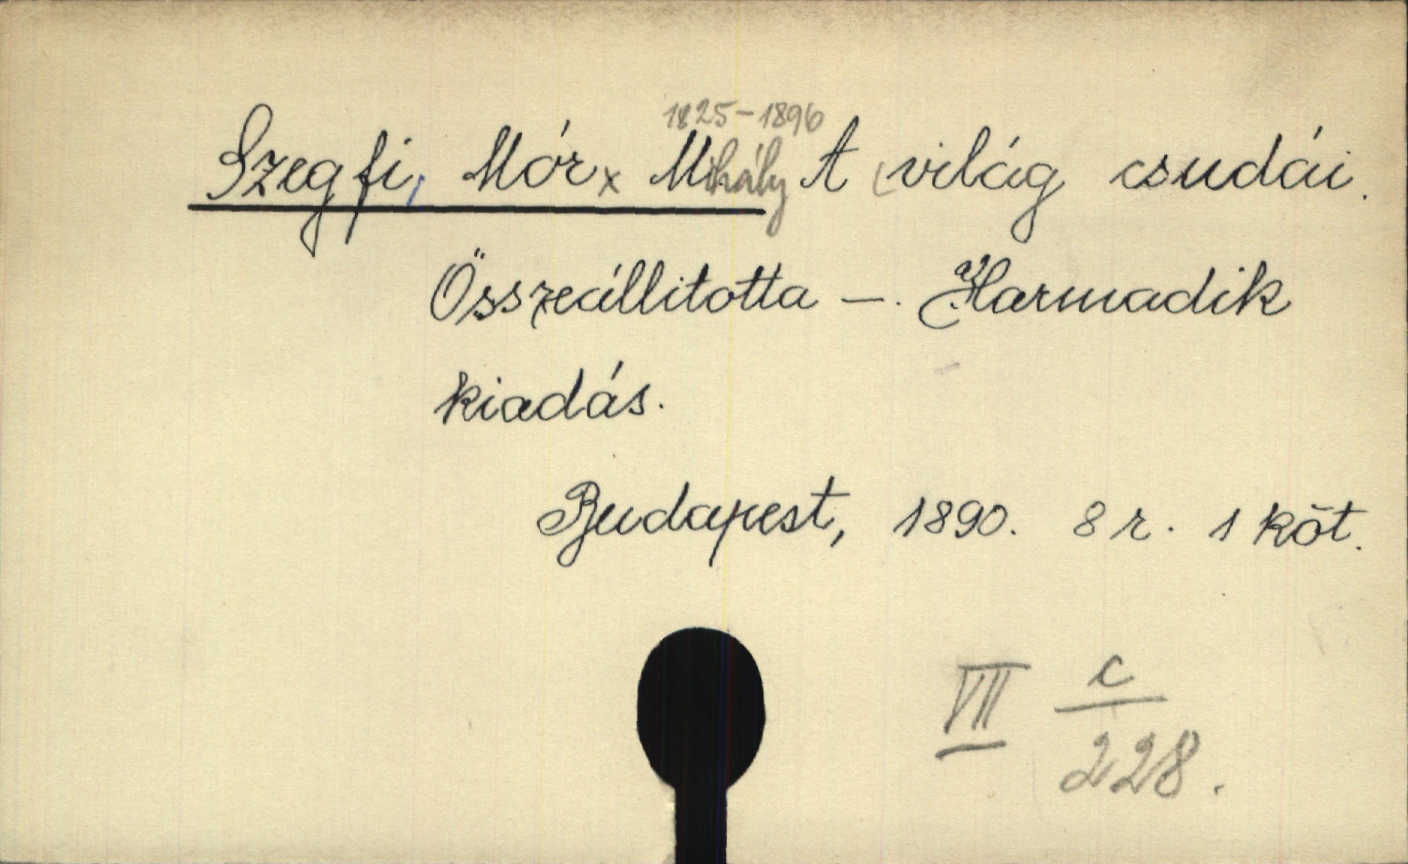 1825-1896
Szegfi, Mór x Mihály A világ csudái.
Összeállitotta —. Harmadik
kiadás.
Budapest, 1890. 8 r. 1 köt.
VII c
228.